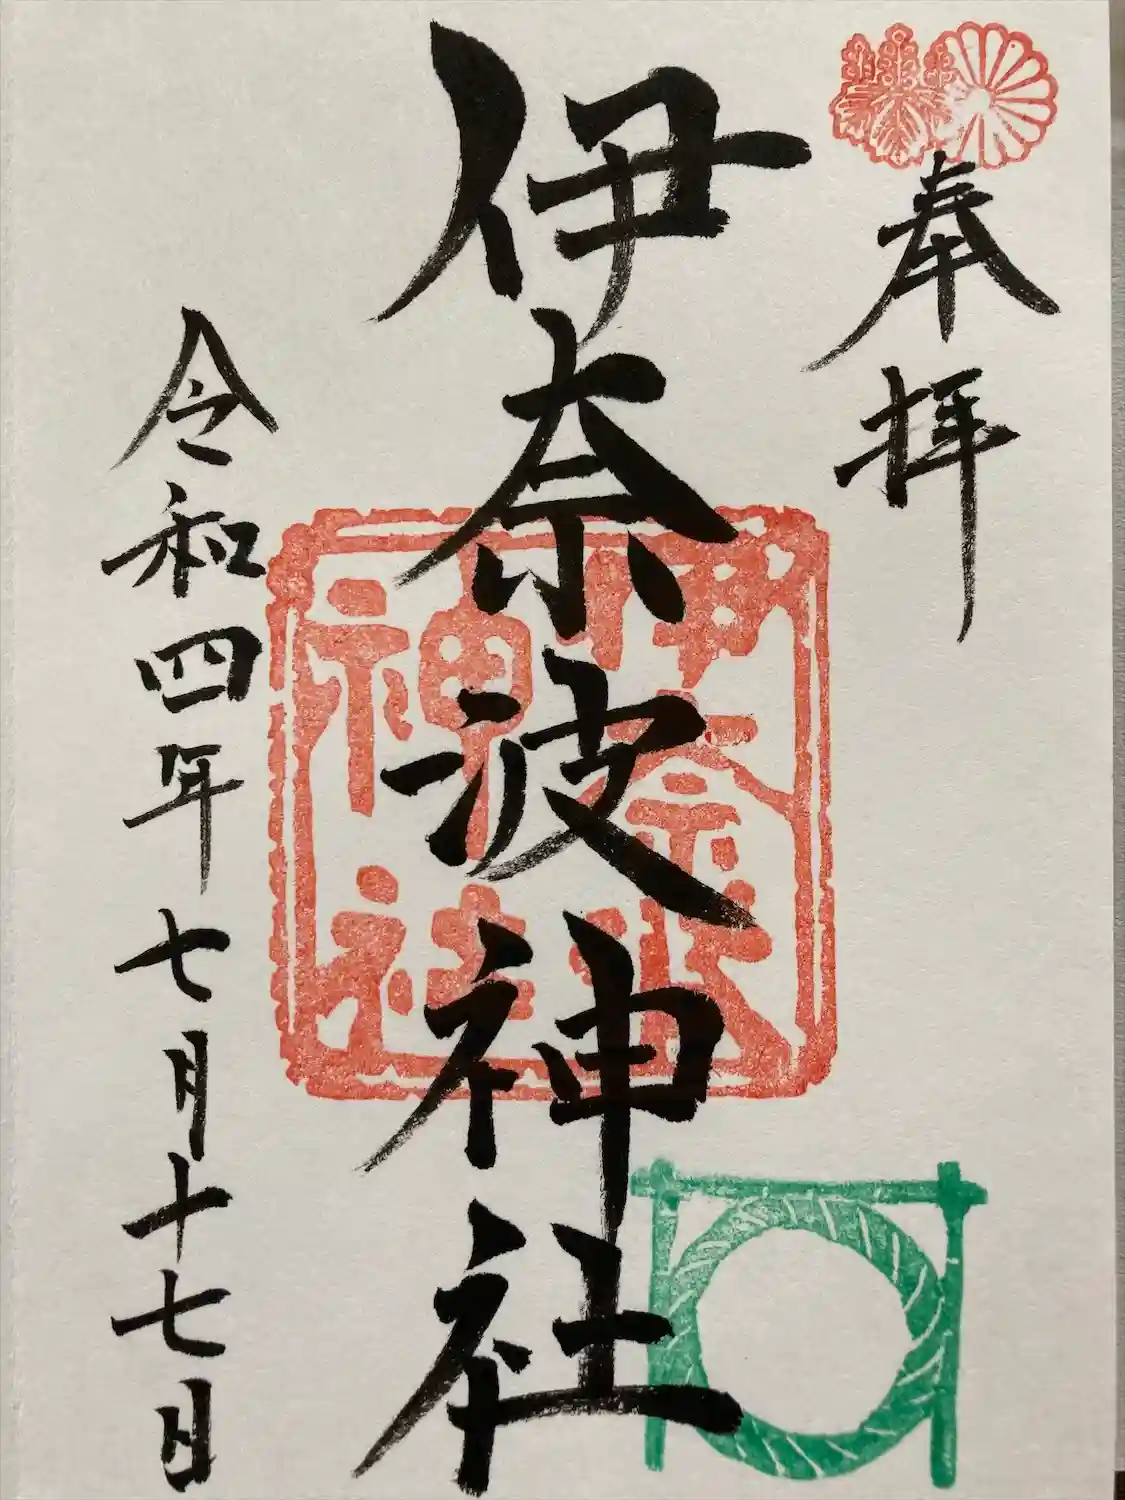 奉拝
伊奈波神社
伊奈波
神社
令和四年七月十七日